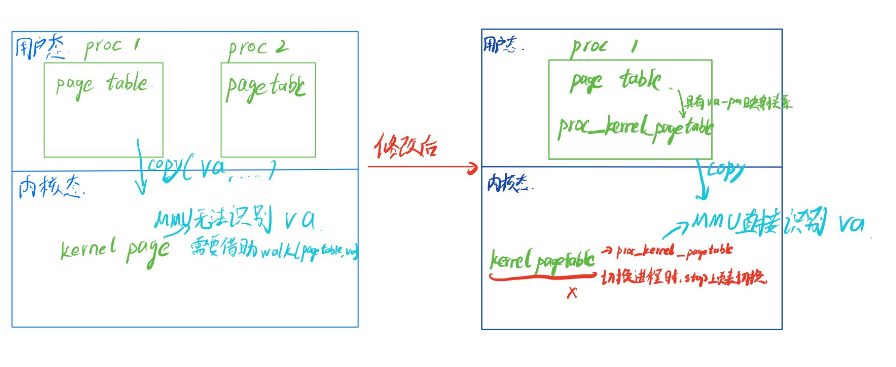 用户态 proc 1 proc 2
page table
pagetable
copy( va, ....)
内核态
MMU无法识别 va
kernel page
需要借助walk(pagetable, va)
修改后
用户态 proc 1
page table
具有va-pa映射关系
proc_kernel_pagetable
copy
内核态
MMU直接识别 va
kernel pagetable
→ proc_kernel_pagetable
切换进程时, stap也要切换
x